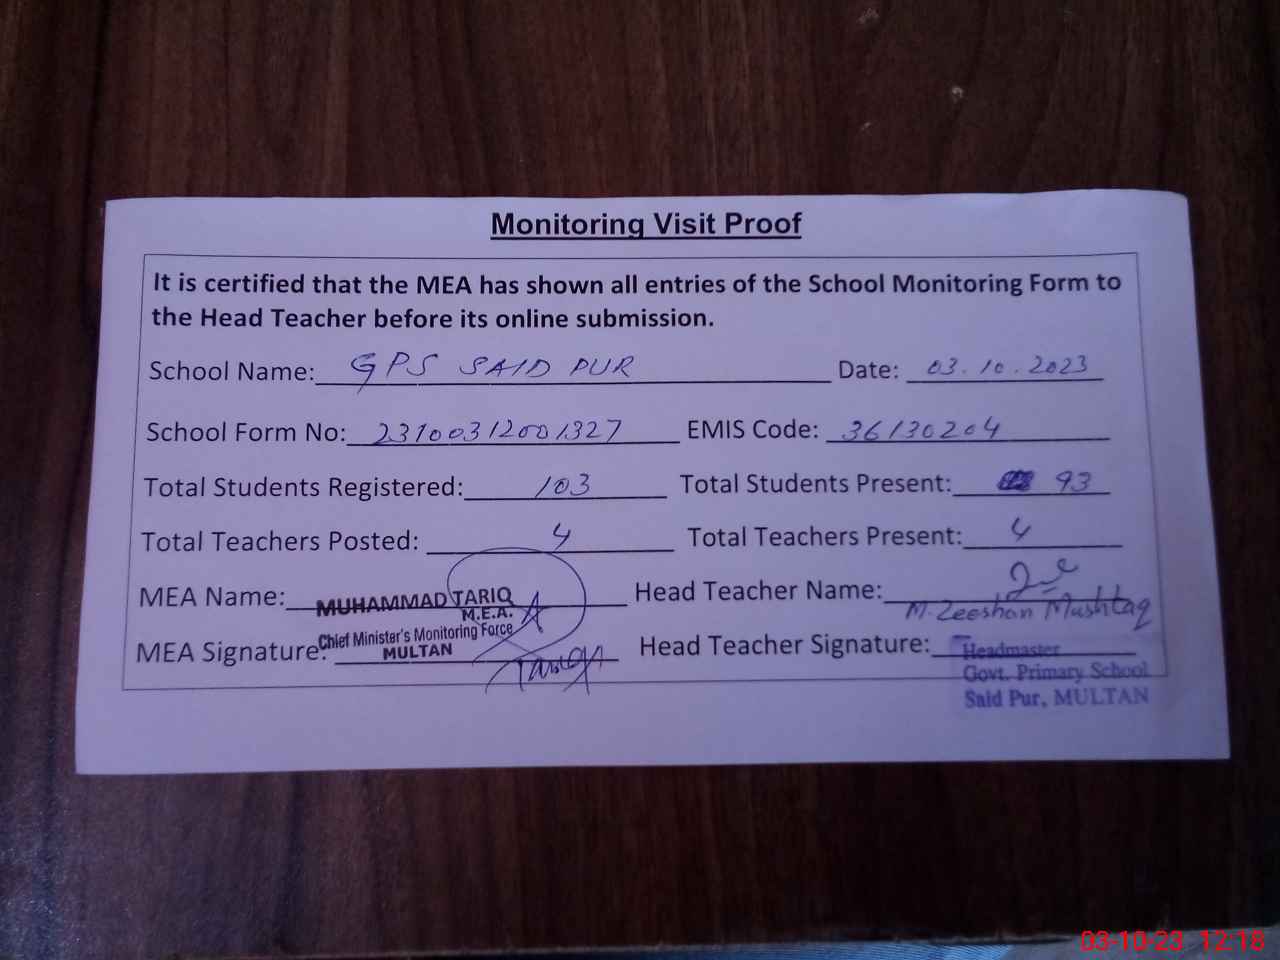 Monitoring Visit Proof
It is certified that the MEA has shown all entries of the School Monitoring Form to
the Head Teacher before its online submission.
School Name: GPS SAID PUR Date: 03.10.2023
School Form No: 23100312001327 EMIS Code: 36130204
Total Students Registered: 103 Total Students Present: 93
Total Teachers Posted: 4 Total Teachers Present: 4
MEA Name: MUHAMMAD TARIQ Head Teacher Name:
M.E.A. M. Zeeshan Mushtaq
Chief Minister's Monitoring Force
MEA Signature: MULTAN Head Teacher Signature: Headmaster
Tariq
Govt. Primary School
Said Pur, MULTAN
03-10-23 12:18